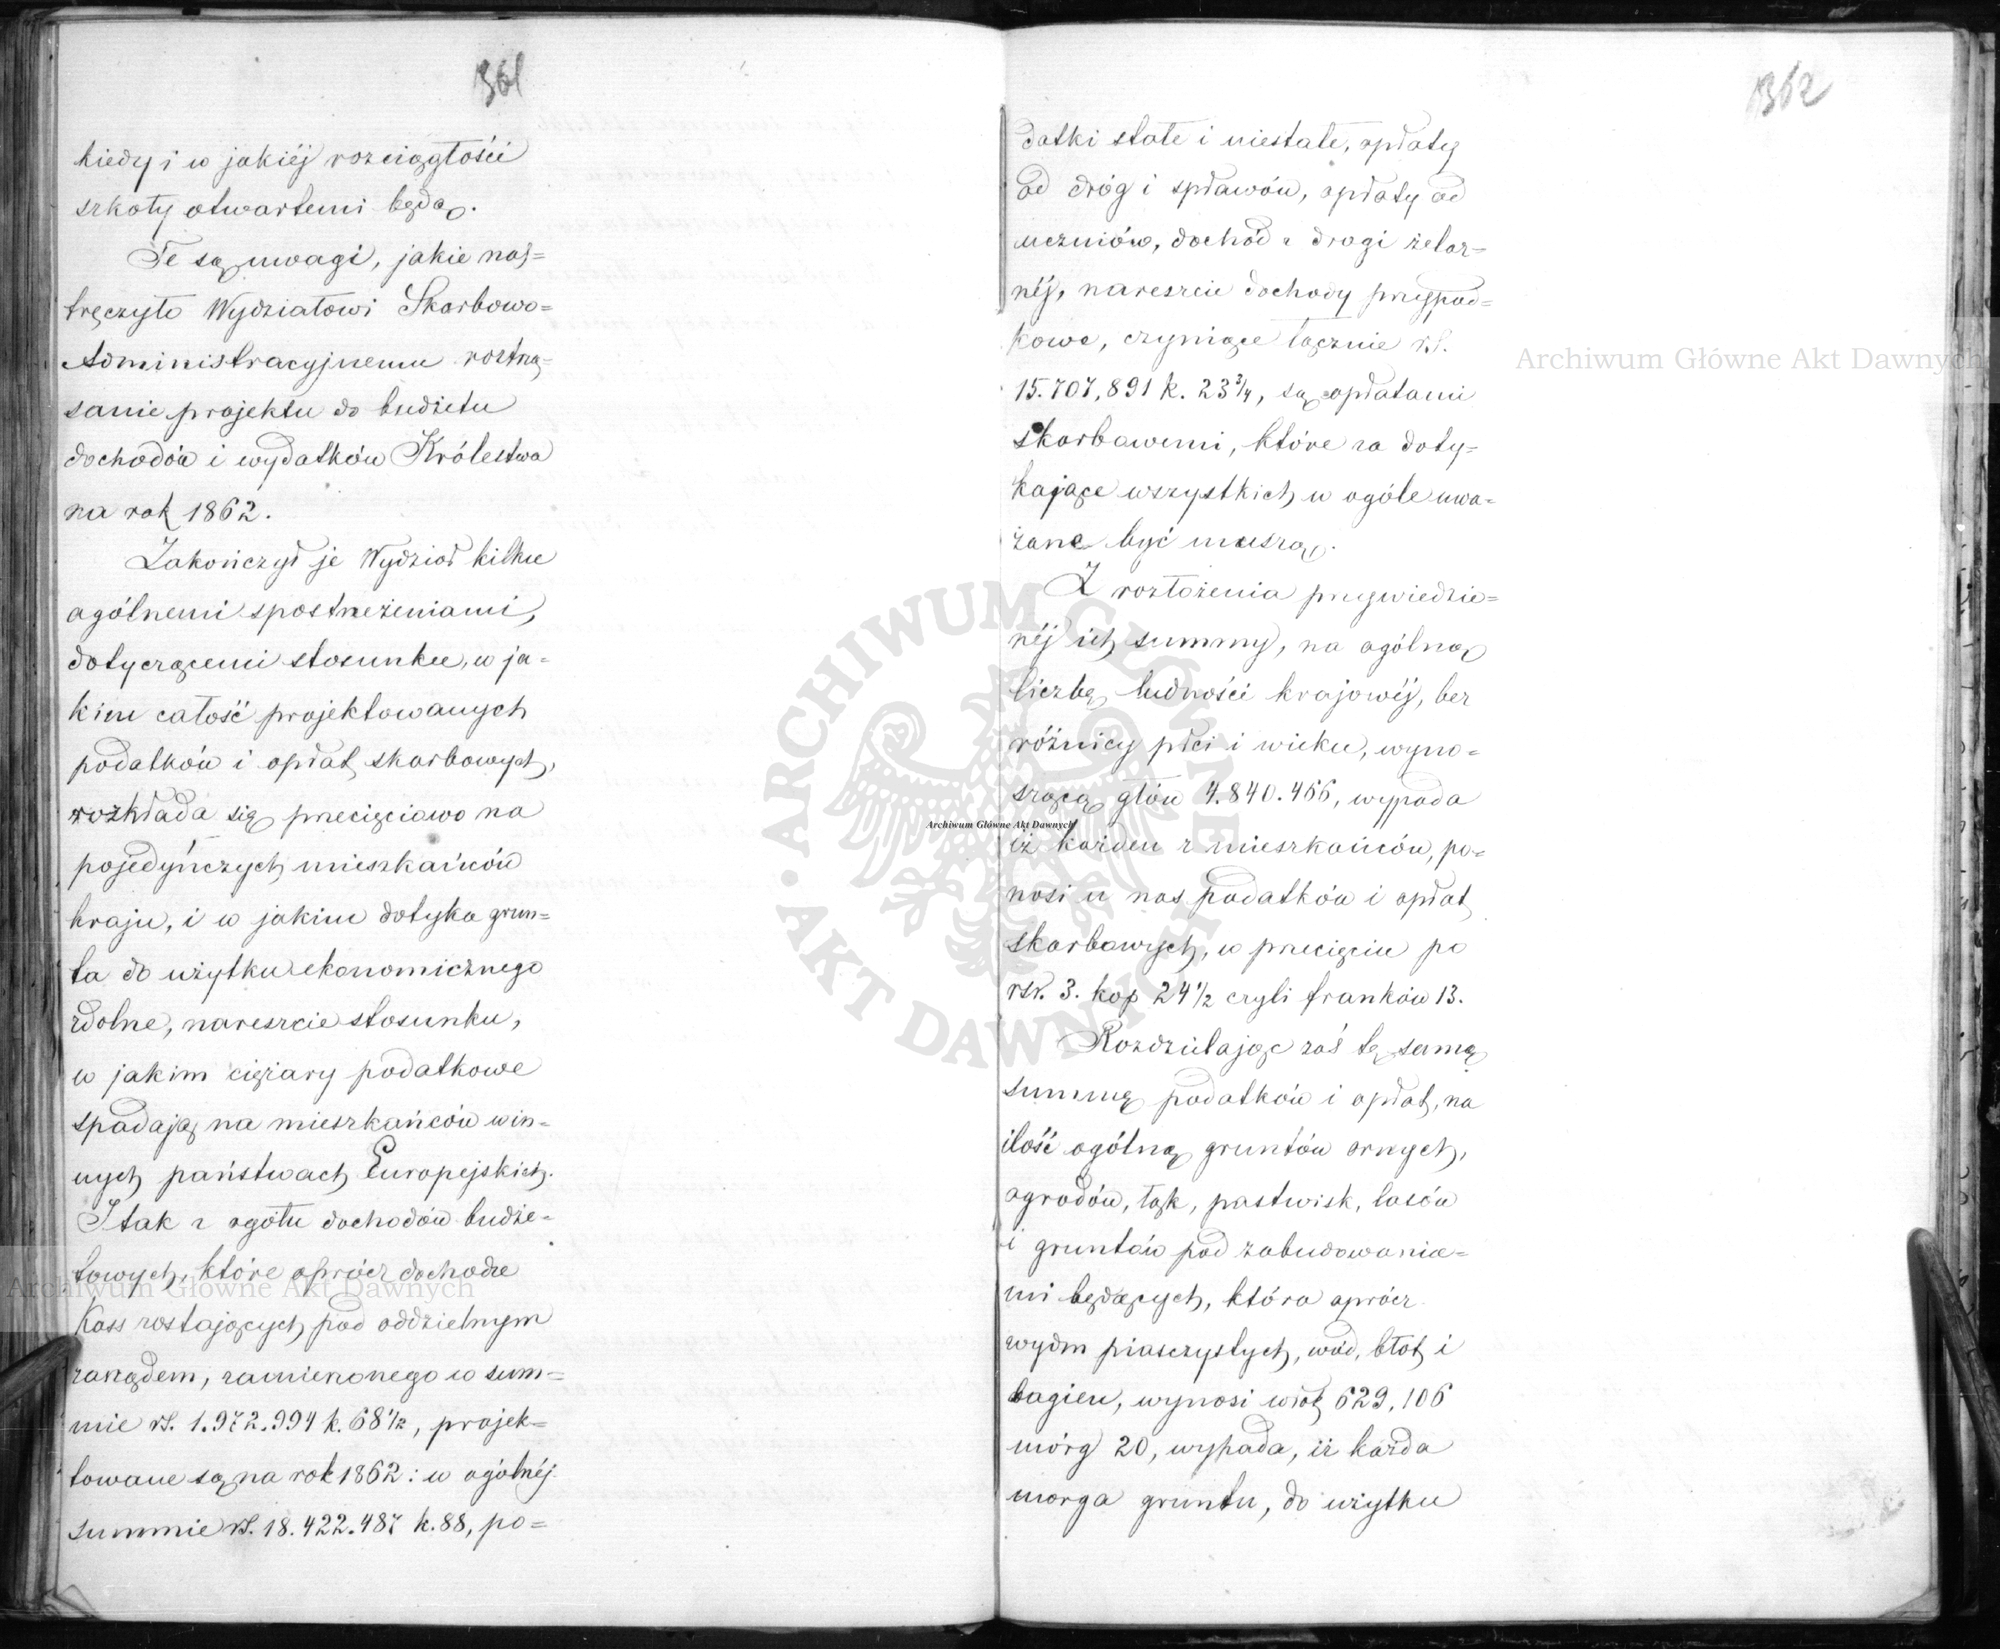 1361
kiedy i w jakiéj rozciągłości
szkoły otwartemi będą.
Te są uwagi, jakie nas=
tręczyło Wydziałowi Skarbowo=
Administracyjnemu roztrzą=
sanie projektu do budżetu
dochodów i wydatków Królestwa
na rok 1862.
Zakończył je Wydział kilku
ogólnemi spostrzeżeniami,
dotyczącemi stosunku, w ja=
kim całość projektowanych
podatków i opłat skarbowych,
rozkłada się przecięciowo na
pojedyńczych mieszkańców
kraju, i w jakim dotyka grun=
ta do użytku ekonomicznego
zdolne, nareszcie stosunku,
w jakim ciężary podatkowe
spadają na mieszkańców w in=
nych państwach Europejskich.
I tak z ogółu dochodów budże=
towych, które oprócz dochodu
Kass zostających pod oddzielnym
zarządem, zamierzonego w sum=
mie rs. 1.972.994 k. 68 1/2, projek=
towane są na rok 1862: w ogólnéj
summie rs. 18.422.487 k. 88, po=
1362
datki stałe i niestałe, opłaty
od dróg i spławów, opłaty od
uczniów, dochód z drogi żelaz=
néj, nareszcie dochody przypad=
kowe, czyniące łącznie rs.
15.707,891 k. 23 3/4, są opłatami
skarbowemi, które za doty=
kające wszystkich w ogóle uwa=
żane być muszą.
Z rozłożenia przywiedzio=
néj ich summy, na ogólną
liczbę ludności krajowéj, bez
różnicy płci i wieku, wyno=
szącą głów 4.840.466, wypada
iż każden z mieszkańców, po=
nosi u nas podatków i opłat
skarbowych, w przecięciu po
rsr. 3. kop 24 1/2 czyli franków 13.
Rozdzielając zaś tę samą
summę podatków i opłat, na
ilość ogólną gruntów ornych,
ogrodów, łąk, pastwisk, lasów
i gruntów pod zabudowania=
mi będących, która oprócz
wydm piasczystych, wód, błot i
bagien, wynosi włók 629,106
mórg 20, wypada, iż każda
morga gruntu, do użytku
Archiwum Główne Akt Dawnych
Archiwum Główne Akt Dawnych
Archiwum Główne Akt Dawnych
ARCHIWUM GŁÓWNE · AKT DAWNYCH ·